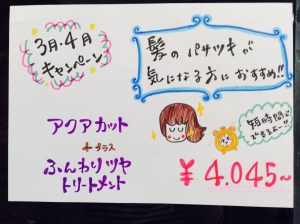 3月・4月
キャンペーン
髪のパサツキが
気になる方におすすめ!!
アクアカット
+プラス
ふんわりツヤ
トリートメント
短時間で
できるよー!!
¥4.045~